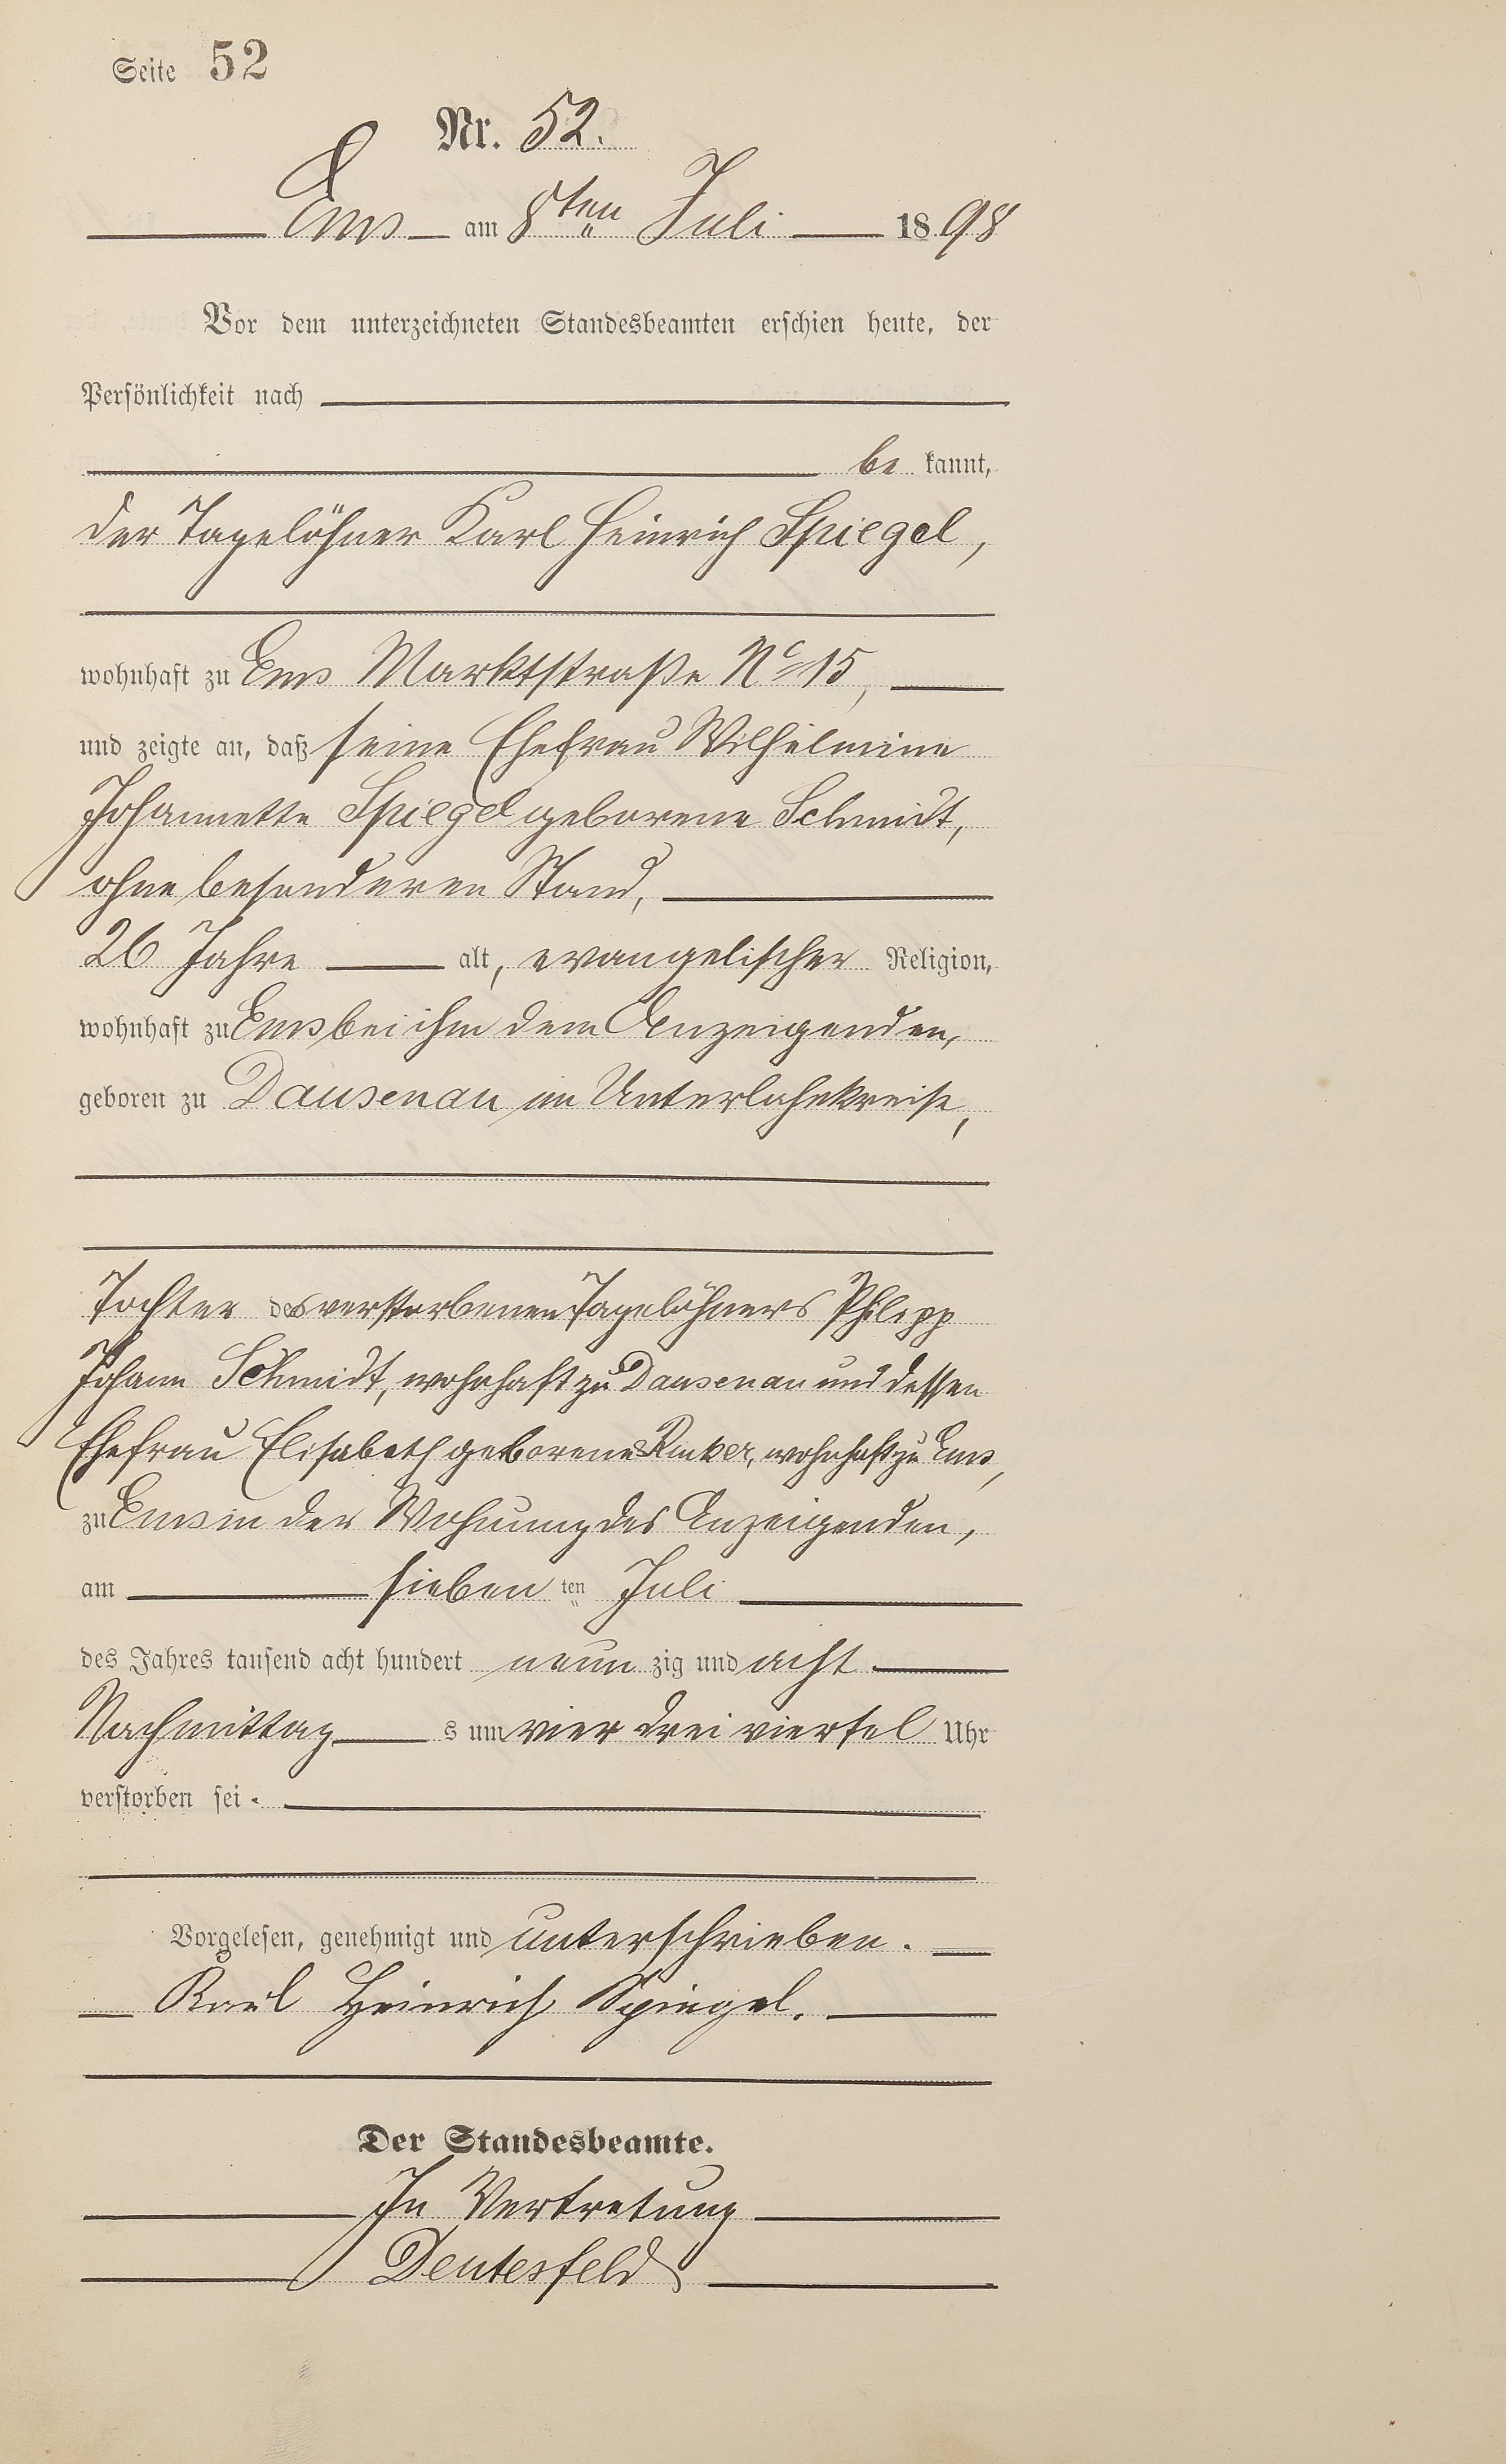 Seite 52
Nr. 52.
Ems am 8ten Juli 1898
Vor dem unterzeichneten Standesbeamten erschien heute, der
Persönlichkeit nach
be kannt,
der Tagelöhner Karl Heinrich Spiegel,
wohnhaft zu Ems Marktstraße No 15,
und zeigte an, daß seine Ehefrau Wilhelmine
Johannette Spiegel geborene Schmidt,
ohne besonderen Stand,
26 Jahre alt, evangelischer Religion,
wohnhaft zu Ems bei ihm dem Anzeigenden,
geboren zu Dausenau im Unterlahnkreise,
Tochter des verstorbenen Tagelöhners Philipp
Johann Schmidt, wohnhaft zu Dausenau und dessen
Ehefrau Elisabeth geborene Rinker, wohnhaft zu Ems,
zu Ems in der Wohnung des Anzeigenden,
am sieben ten Juli
des Jahres tausend acht hundert neun zig und acht
Nachmittag s um vier drei viertel Uhr
verstorben sei.
Vorgelesen, genehmigt und unterschrieben.
Karl Heinrich Spiegel.
Der Standesbeamte.
In Vertretung
Deutesfeld